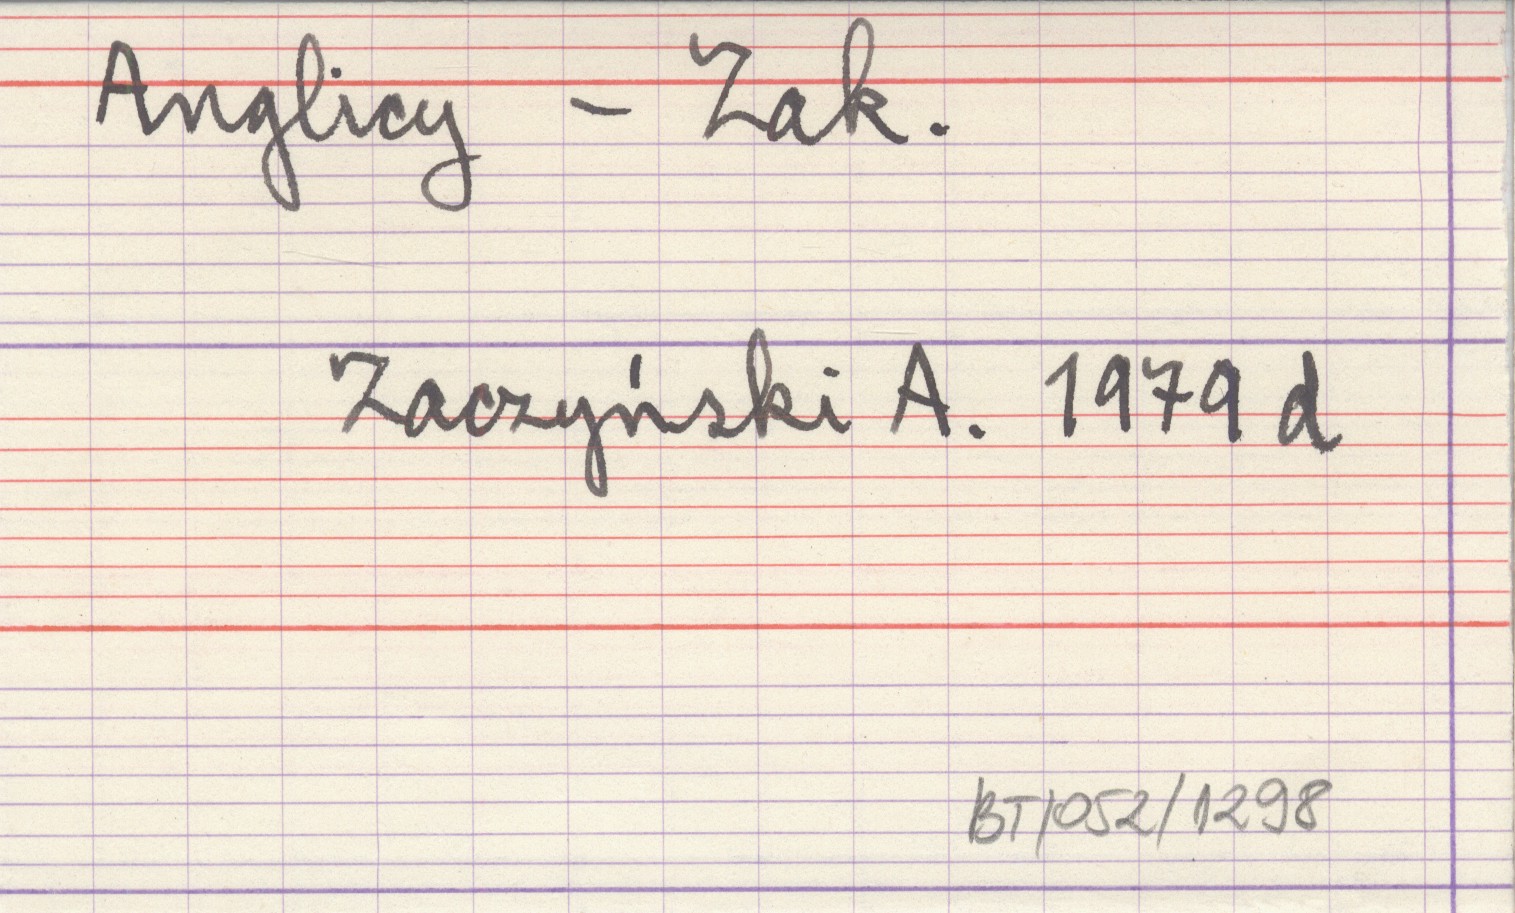 Anglicy - Zak.
Zaczyński A. 1979 d
BT/052/1298